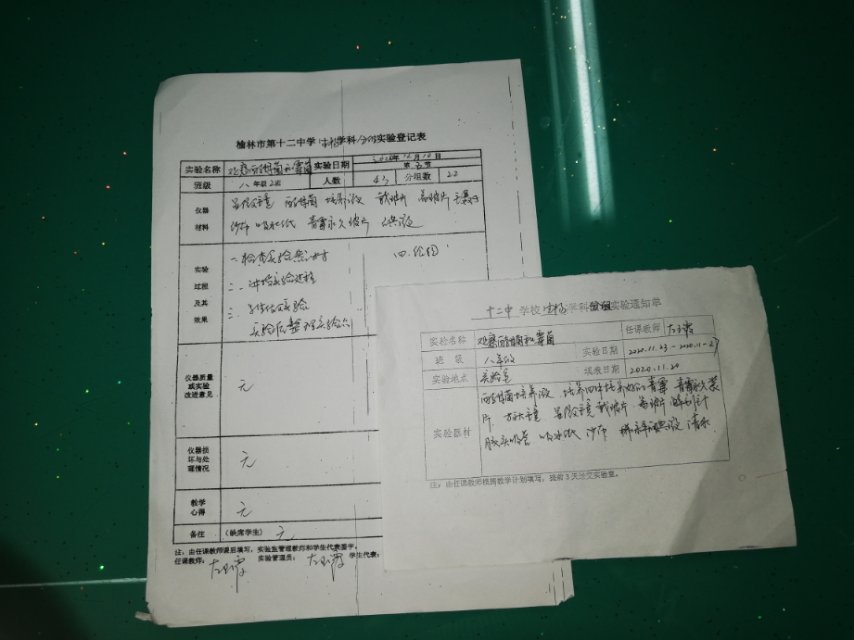 榆林市第十二中学生物学科分组实验登记表
实验名称 观察酵母菌和霉菌 实验日期
班级 八年级2班 人数 43 分组数 22
仪器
材料
显微镜 酵母菌 培养液 载玻片 盖玻片
纱布 吸水纸 青霉永久玻片 碘液
实验
过程
及其
效果
一. 检查实验器材
二. 讲解实验过程
三. 学生做实验
实验后整理实验台
四. 绘图
仪器质量
或实验
改进意见
无
仪器损
坏与处
理情况
无
教学
心得
无
备注 (缺席学生) 无
注:由任课教师课后填写,实验室管理教师和学生代表签字。
任课教师: 实验管理员: 学生代表:
十二中 学校 生物 学科 实验通知单
实验名称 观察酵母菌和霉菌 任课教师
班 级 八年级 实验日期 2020.11.23-2020.11.27
实验地点 实验室 填表日期 2020.11.20
实验器材
酵母菌培养液 青霉 青霉永久装
片 放大镜 显微镜 载玻片 盖玻片 解剖针
胶头吸管 吸水纸 纱布 稀碘液 清水
注:由任课教师根据教学计划填写,提前3天送交实验室。